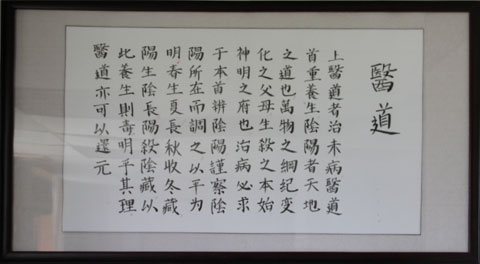 醫道
上醫道者治未病醫道
首重養生陰陽者天地
之道也萬物之綱纪变
化之父母生殺之本始
神明之府也治病必求
于本首辨陰陽謹察陰
陽所在而調之以平为
明春生夏長秋收冬藏
陽生陰長陽殺陰藏以
此養生則壽明乎其理
醫道亦可以還元